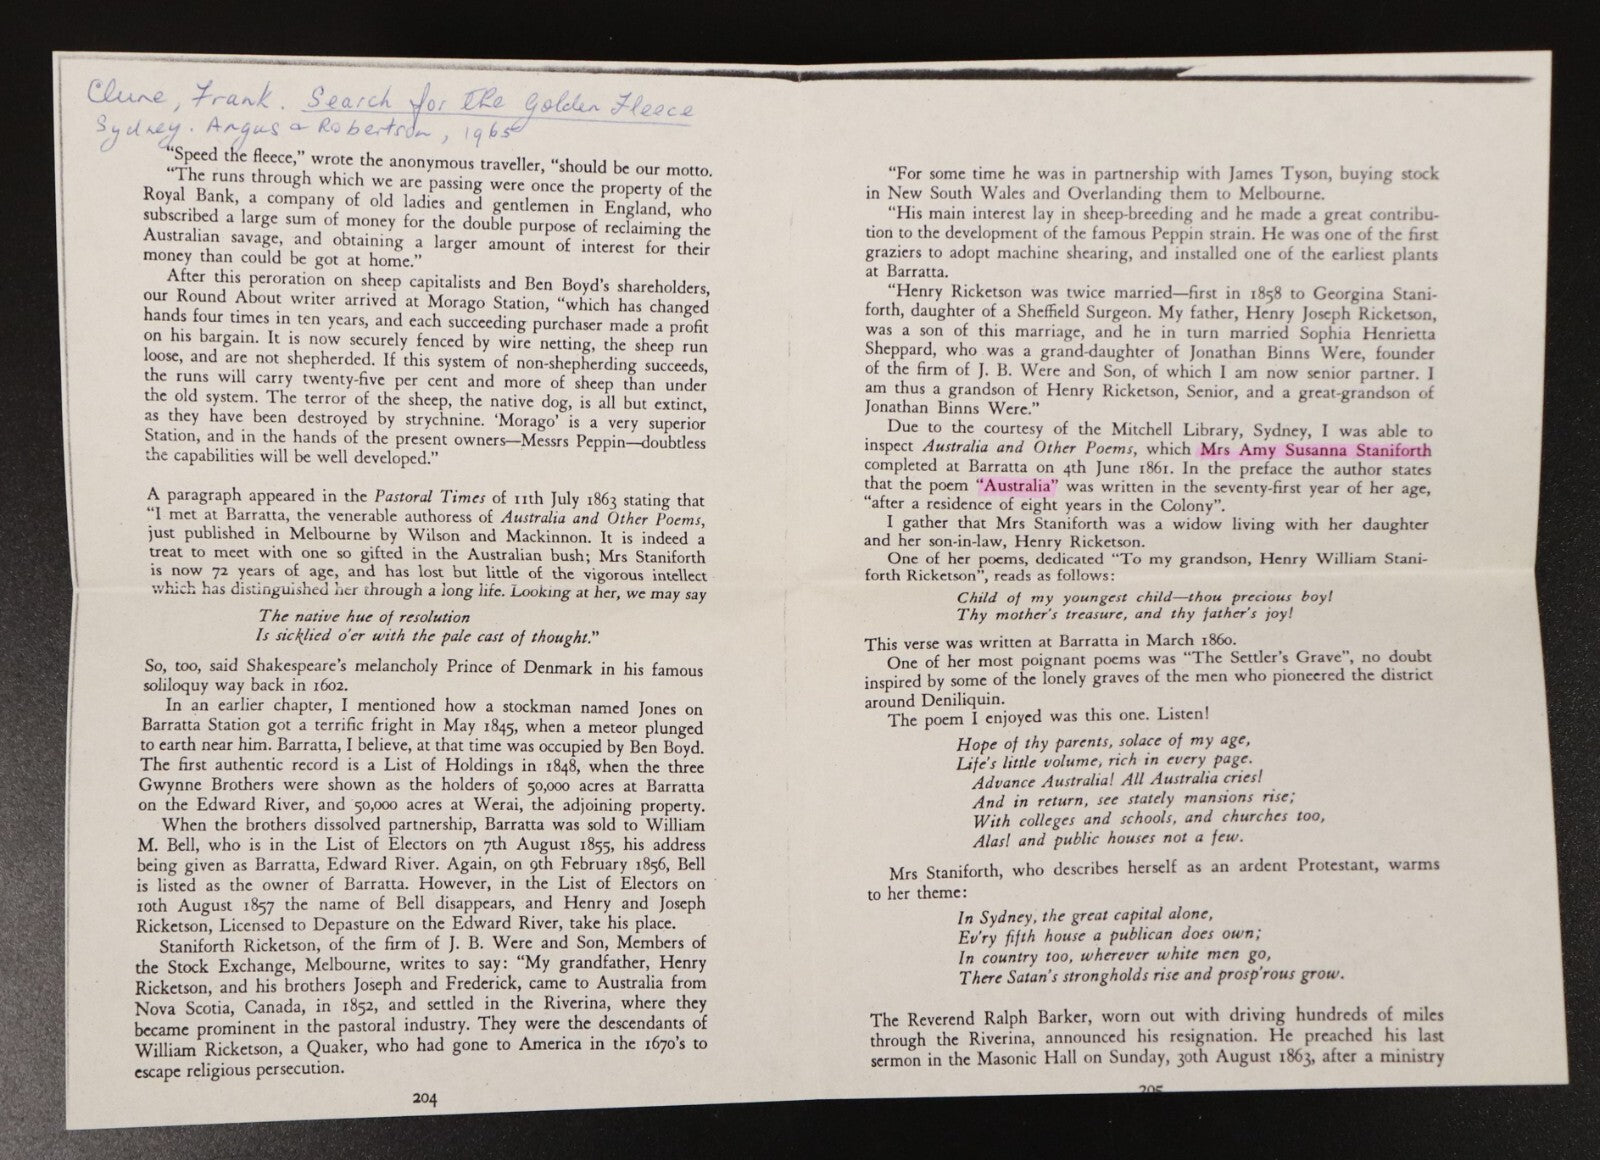 Clune, Frank. Search for the Golden Fleece
Sydney. Angus & Robertson, 1965
"Speed the fleece," wrote the anonymous traveller, "should be our motto.
"The runs through which we are passing were once the property of the
Royal Bank, a company of old ladies and gentlemen in England, who
subscribed a large sum of money for the double purpose of reclaiming the
Australian savage, and obtaining a larger amount of interest for their
money than could be got at home."
After this peroration on sheep capitalists and Ben Boyd's shareholders,
our Round About writer arrived at Morago Station, "which has changed
hands four times in ten years, and each succeeding purchaser made a profit
on his bargain. It is now securely fenced by wire netting, the sheep run
loose, and are not shepherded. If this system of non-shepherding succeeds,
the runs will carry twenty-five per cent and more of sheep than under
the old system. The terror of the sheep, the native dog, is all but extinct,
as they have been destroyed by strychnine. 'Morago' is a very superior
Station, and in the hands of the present owners—Messrs Peppin—doubtless
the capabilities will be well developed."
A paragraph appeared in the Pastoral Times of 11th July 1863 stating that
"I met at Barratta, the venerable authoress of Australia and Other Poems,
just published in Melbourne by Wilson and Mackinnon. It is indeed a
treat to meet with one so gifted in the Australian bush; Mrs Staniforth
is now 72 years of age, and has lost but little of the vigorous intellect
which has distinguished her through a long life. Looking at her, we may say
The native hue of resolution
Is sicklied o'er with the pale cast of thought."
So, too, said Shakespeare's melancholy Prince of Denmark in his famous
soliloquy way back in 1602.
In an earlier chapter, I mentioned how a stockman named Jones on
Barratta Station got a terrific fright in May 1845, when a meteor plunged
to earth near him. Barratta, I believe, at that time was occupied by Ben Boyd.
The first authentic record is a List of Holdings in 1848, when the three
Gwynne Brothers were shown as the holders of 50,000 acres at Barratta
on the Edward River, and 50,000 acres at Werai, the adjoining property.
When the brothers dissolved partnership, Barratta was sold to William
M. Bell, who is in the List of Electors on 7th August 1855, his address
being given as Barratta, Edward River. Again, on 9th February 1856, Bell
is listed as the owner of Barratta. However, in the List of Electors on
10th August 1857 the name of Bell disappears, and Henry and Joseph
Ricketson, Licensed to Depasture on the Edward River, take his place.
Staniforth Ricketson, of the firm of J. B. Were and Son, Members of
the Stock Exchange, Melbourne, writes to say: "My grandfather, Henry
Ricketson, and his brothers Joseph and Frederick, came to Australia from
Nova Scotia, Canada, in 1852, and settled in the Riverina, where they
became prominent in the pastoral industry. They were the descendants of
William Ricketson, a Quaker, who had gone to America in the 1670's to
escape religious persecution.
204
"For some time he was in partnership with James Tyson, buying stock
in New South Wales and Overlanding them to Melbourne.
"His main interest lay in sheep-breeding and he made a great contribu-
tion to the development of the famous Peppin strain. He was one of the first
graziers to adopt machine shearing, and installed one of the earliest plants
at Barratta.
"Henry Ricketson was twice married—first in 1858 to Georgina Stani-
forth, daughter of a Sheffield Surgeon. My father, Henry Joseph Ricketson,
was a son of this marriage, and he in turn married Sophia Henrietta
Sheppard, who was a grand-daughter of Jonathan Binns Were, founder
of the firm of J. B. Were and Son, of which I am now senior partner. I
am thus a grandson of Henry Ricketson, Senior, and a great-grandson of
Jonathan Binns Were."
Due to the courtesy of the Mitchell Library, Sydney, I was able to
inspect Australia and Other Poems, which Mrs Amy Susanna Staniforth
completed at Barratta on 4th June 1861. In the preface the author states
that the poem "Australia" was written in the seventy-first year of her age,
"after a residence of eight years in the Colony".
I gather that Mrs Staniforth was a widow living with her daughter
and her son-in-law, Henry Ricketson.
One of her poems, dedicated "To my grandson, Henry William Stani-
forth Ricketson", reads as follows:
Child of my youngest child—thou precious boy!
Thy mother's treasure, and thy father's joy!
This verse was written at Barratta in March 1860.
One of her most poignant poems was "The Settler's Grave", no doubt
inspired by some of the lonely graves of the men who pioneered the district
around Deniliquin.
The poem I enjoyed was this one. Listen!
Hope of thy parents, solace of my age,
Life's little volume, rich in every page.
Advance Australia! All Australia cries!
And in return, see stately mansions rise;
With colleges and schools, and churches too,
Alas! and public houses not a few.
Mrs Staniforth, who describes herself as an ardent Protestant, warms
to her theme:
In Sydney, the great capital alone,
Ev'ry fifth house a publican does own;
In country too, wherever white men go,
There Satan's strongholds rise and prosp'rous grow.
The Reverend Ralph Barker, worn out with driving hundreds of miles
through the Riverina, announced his resignation. He preached his last
sermon in the Masonic Hall on Sunday, 30th August 1863, after a ministry
205